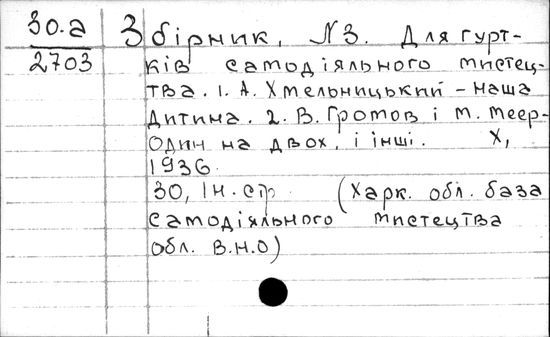 30.а
2703
Збірник, N3. Для гурт-
ків самодіяльного мистец-
тва. 1. А. Хмельницький - наша
дитина. 2. В. Громов і М. Меєр-
Один на двох, і інші. Х,
1936
30, Ін. стр (Харк. обл. база
самодіяльного мистецтва
обл. В.Н.О)